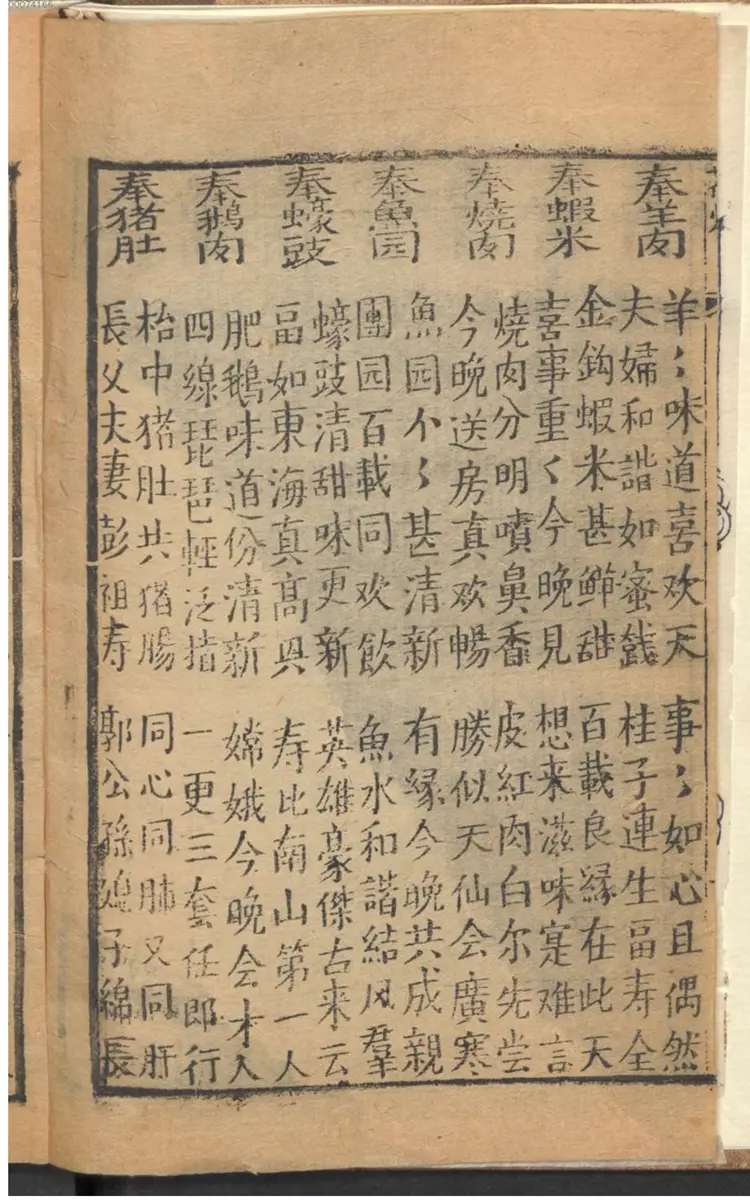 00074166
奉羊肉
羊〻味道喜欢天　事〻如心且偶然
夫婦和諧如蜜餞　桂子連生畐寿全
奉蝦米
金鈎蝦米甚鮮甜　百載良縁在此天
喜事重〻今晚見　想来滋味寔难言
奉燒肉
燒肉分明噴鼻香　皮紅肉白尔先尝
今晚送房真欢暢　勝似天仙会廣寒
奉魚园
魚园个〻甚清新　有縁今晚共成親
團园百載同欢飲　魚水和諧結凤羣
奉蠔豉
蠔豉清甜味更新　英雄豪傑古来云
畐如東海真高興　寿比南山第一人
奉鵝肉
肥鵝味道份清新　嫦娥今晚会才人
四線琵琶輕泛指　一更三套任郎行
奉猪肚
枱中猪肚共猪腸　同心同肺又同肝
長乂夫妻彭祖寿　郭公孫子綿長